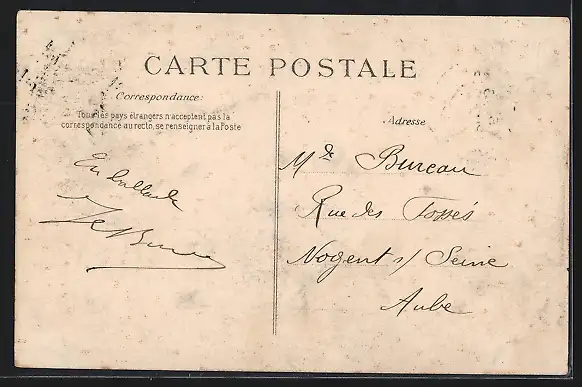 CARTE POSTALE
Correspondance:
Tous les pays étrangers n'acceptent pas la
correspondance au recto, se renseigner à la Poste
Adresse
En ballade
Bureau
Rue des Fossés
Nogent s/ Seine
Aube